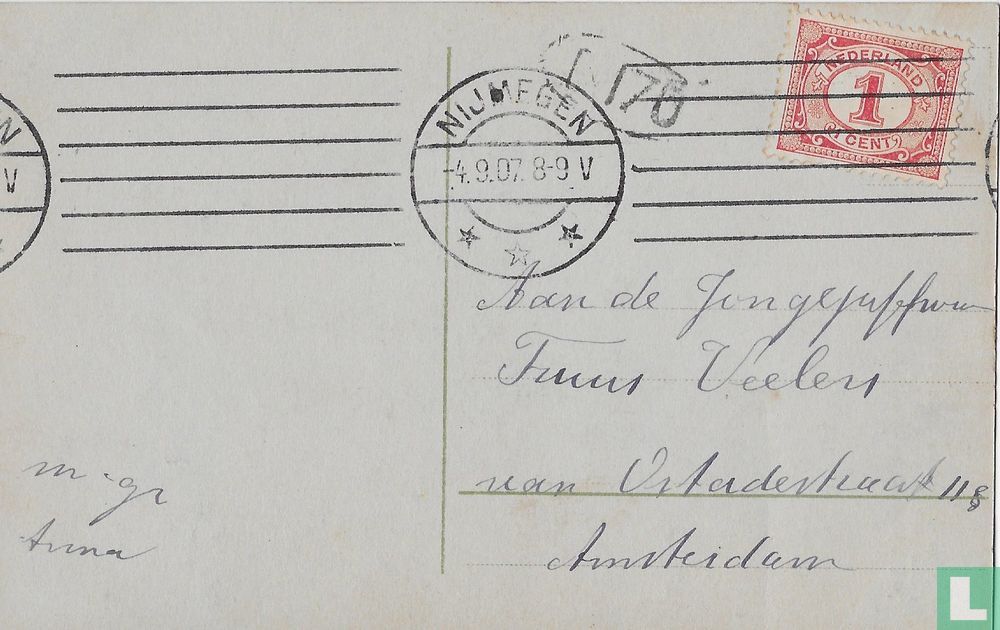 NEDERLAND
1
CENT
N 170
NIJMEGEN
-4.9.07. 8-9 V
EN
V
Aan de Jongejuffrouw
Truus Veelers
van Ostadestraat 118
Amsterdam
m. gr
Anna
L